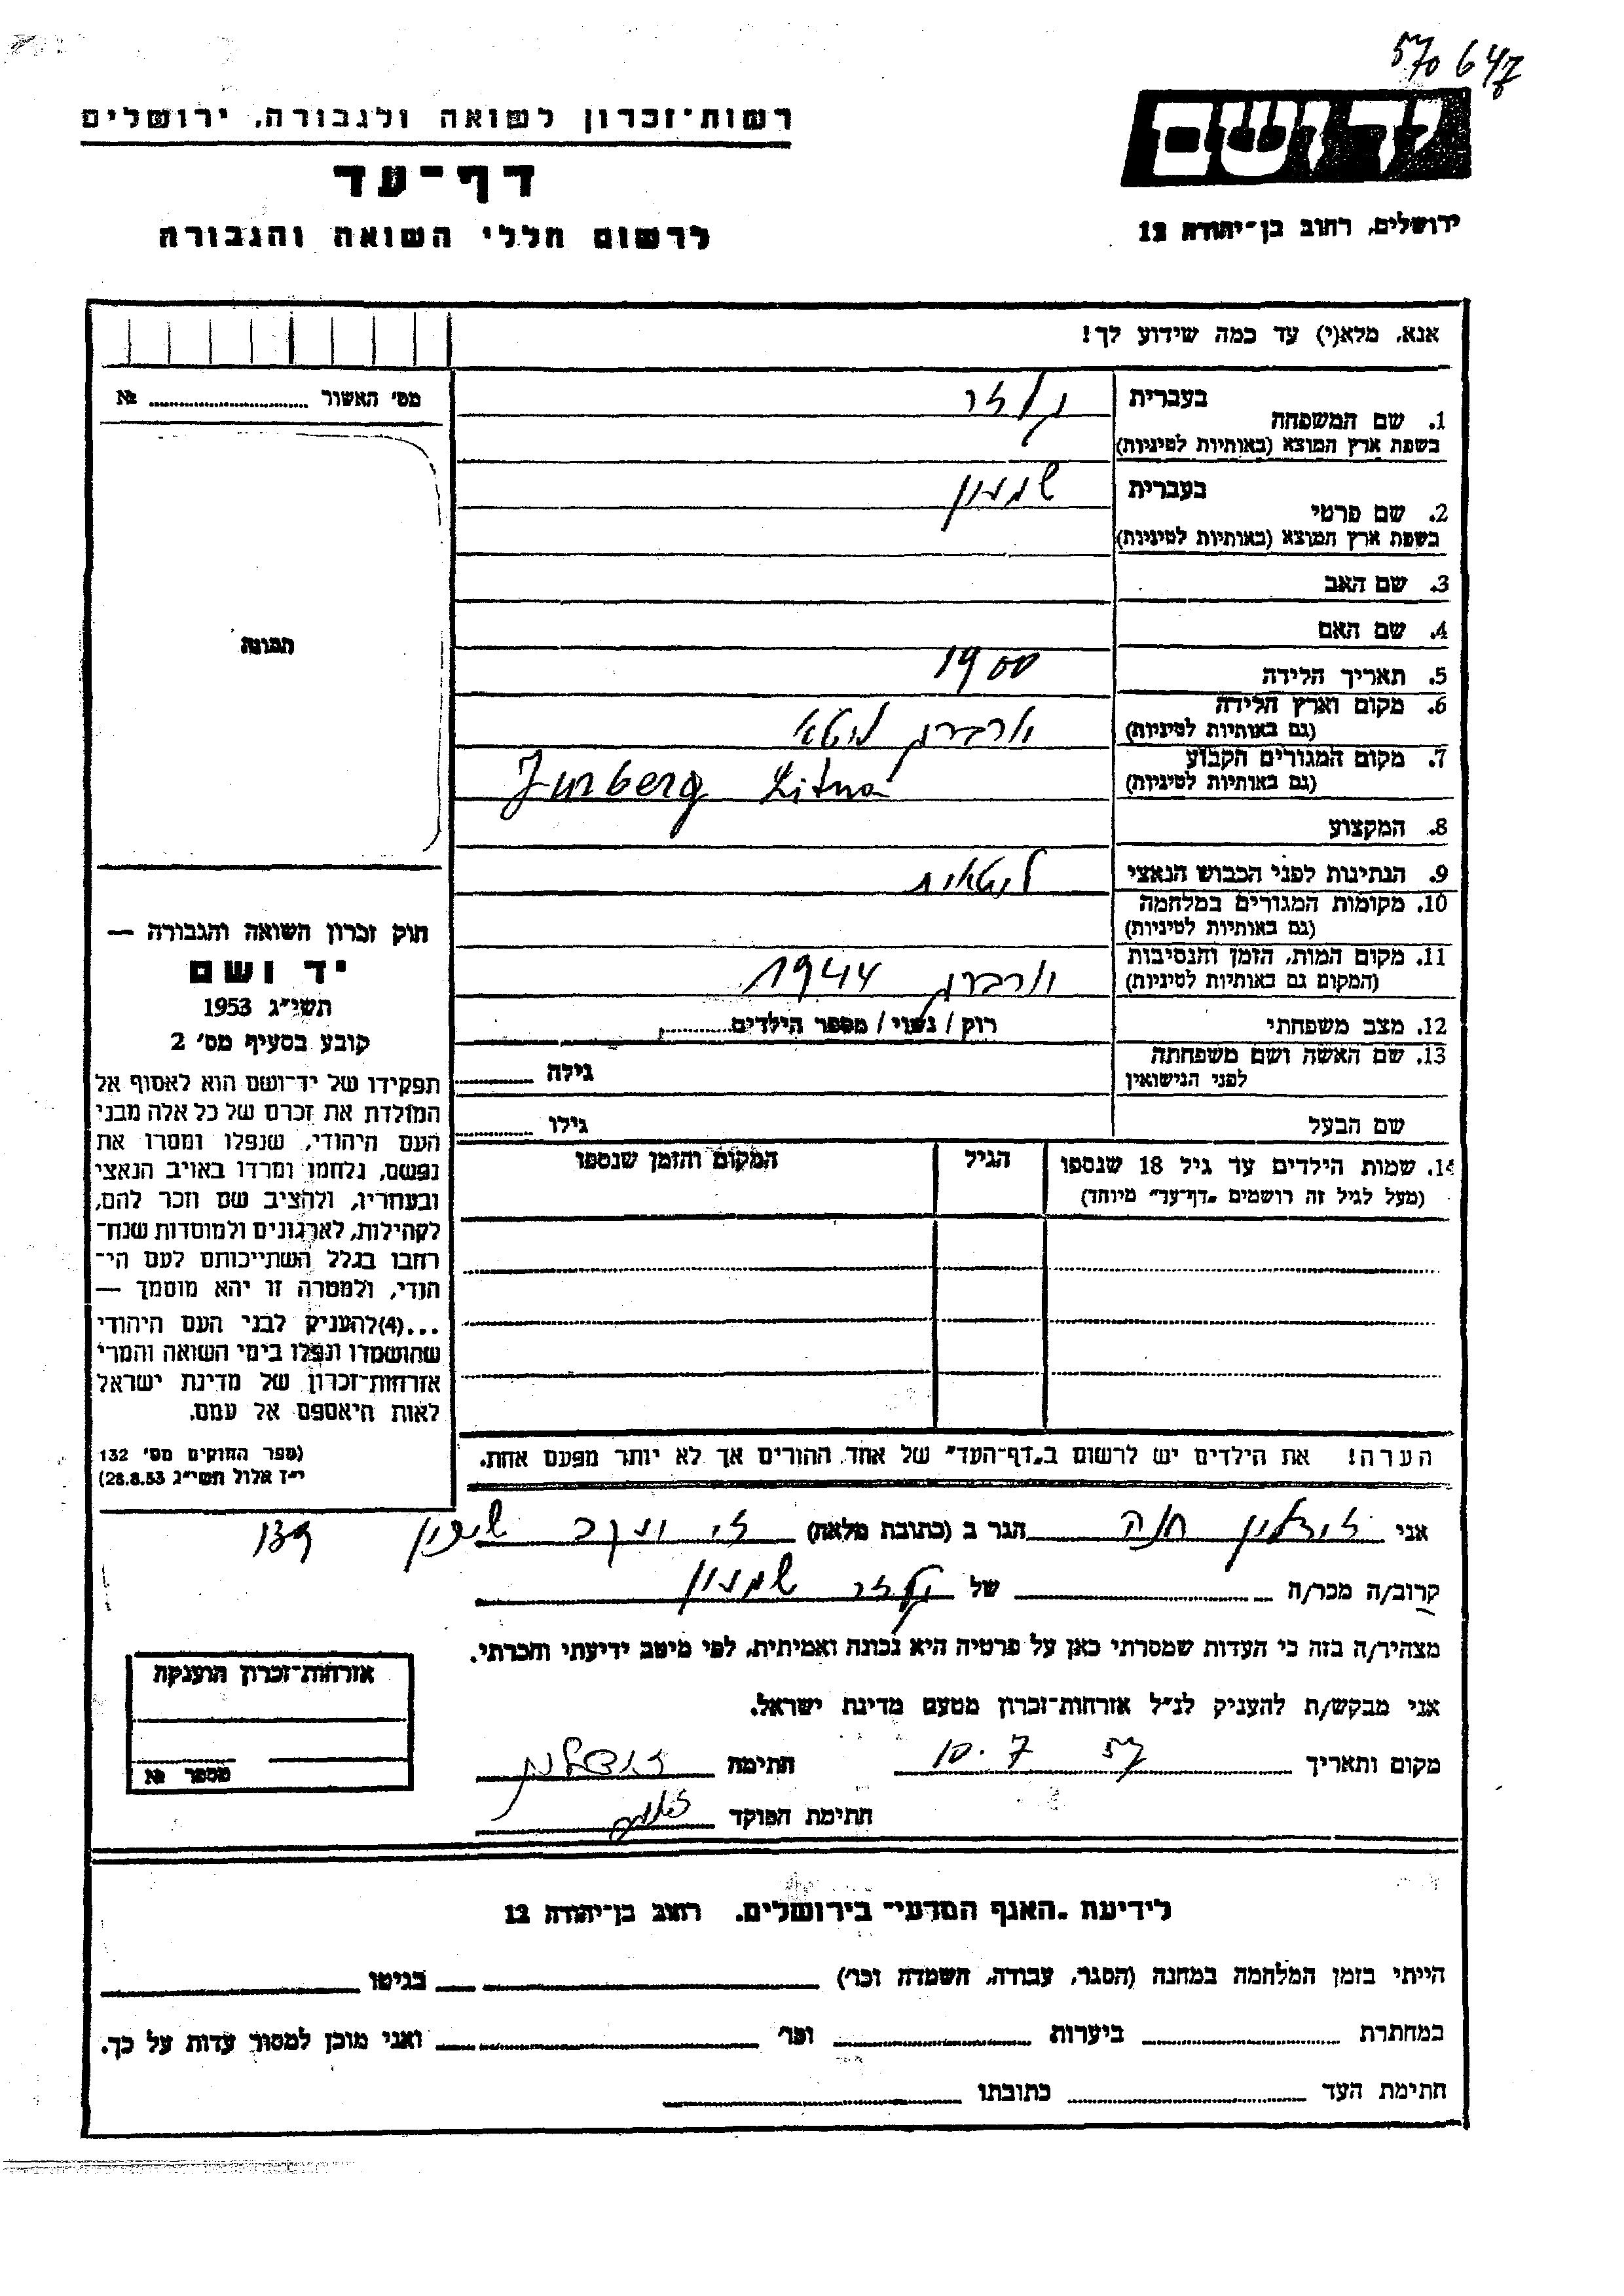 57 647
רשות־זכרון לשואה ולגבורה, ירושלים
יד ושם
דף־עד
לרשום חללי השואה והגבורה
ירושלים, רחוב בן־יהודה 12
אנא, מלא(י) עד כמה שידוע לך!
מס׳ האשור № 
בעברית
1. שם המשפחה
בשפת ארץ המוצא (באותיות לטיניות)
בעברית שמעון
2. שם פרטי
בשפת ארץ המוצא (באותיות לטיניות)
3. שם האב
4. שם האם
התמונה
5. תאריך הלידה 1900
6. מקום וארץ הלידה יורברג ליטא
(גם באותיות לטיניות)
7. מקום המגורים הקבוע Jurberg Litua
(גם באותיות לטיניות)
8. המקצוע
9. הנתינות לפני הכבוש הנאצי ליטאית
10. מקומות המגורים במלחמה
(גם באותיות לטיניות)
11. מקום המות, הזמן והנסיבות יורברג 1944
(המקום גם באותיות לטיניות)
12. מצב משפחתי רוק / נשוי / מספר הילדים
13. שם האשה ושם משפחתה גילה
לפני הנישואין
שם הבעל גילו
14. שמות הילדים עד גיל 18 שנספו הגיל המקום והזמן שנספו
(מעל לגיל זה רושמים „דף־עד״ מיוחד)
חוק זכרון השואה והגבורה —
יד ושם
תשי״ג 1953
קובע בסעיף מס׳ 2
תפקידו של יד־ושם הוא לאסוף אל
המולדת את זכרם של כל אלה מבני
העם היהודי, שנפלו ומסרו את
נפשם, נלחמו ומרדו באויב הנאצי
ובעוזריו, ולהציב שם וזכר להם,
לקהילות, לארגונים ולמוסדות שנח־
רבו בגלל השתייכותם לעם הי־
הודי, ולמטרה זו יהא מוסמך —
...(4)להעניק לבני העם היהודי
שהושמדו ונפלו בימי השואה והמרי
אזרחות־זכרון של מדינת ישראל
לאות היאספם אל עמם.
(ספר החוקים מס׳ 132
י״ז אלול תשי״ג 28.8.53)
הערה! את הילדים יש לרשום ב„דף־העד״ של אחד ההורים אך לא יותר מפעם אחת.
אני חנה הגר ב (כתובת מלאה)
קרוב/ה מכר/ה של שמעון
מצהיר/ה בזה כי העדות שמסרתי כאן על פרטיה היא נכונה ואמיתית, לפי מיטב ידיעתי והכרתי.
אני מבקש/ת להעניק לנ״ל אזרחות־זכרון מטעם מדינת ישראל.
מקום ותאריך 10. 7 57 חתימה
חתימת הפוקד
אזרחות־זכרון הוענקה
מספר №
לידיעת „האגף המדעי״ בירושלים, רחוב בן־יהודה 12
הייתי בזמן המלחמה במחנה (הסגר, עבודה, השמדה וכו׳) בגיטו
במחתרת ביערות וכו׳ ואני מוכן למסור עדות על כך.
חתימת העד כתובתו